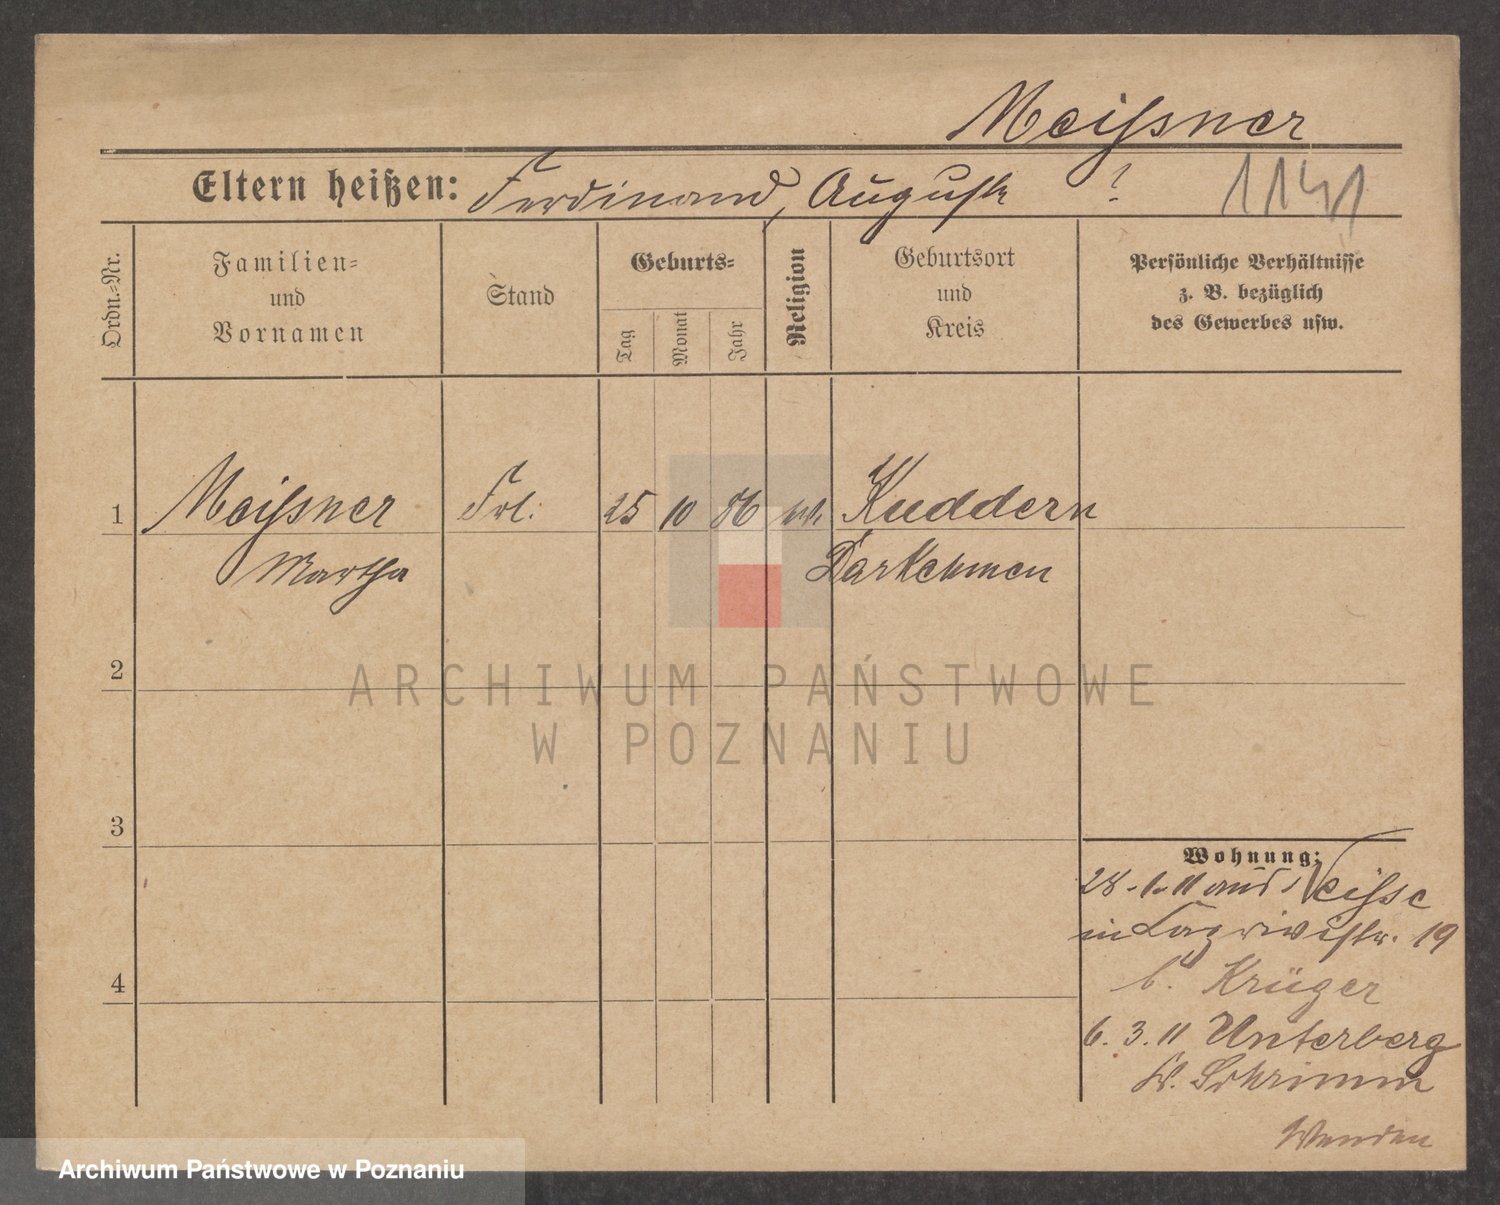 Meißner
Eltern heißen: Ferdinand, Auguste ?
1141
Ordn.-Nr.
Familien-
und
Vornamen
Stand
Geburts-
Tag
Monat
Jahr
Religion
Geburtsort
und
Kreis
Persönliche Verhältnisse
z. B. bezüglich
des Gewerbes usw.
1 Meißner Frl. 25 10 86 Kuddern
Martha Darkehmen
2
3
4
Wohnung:
28.1.11 aus Neisse
in 19
b. Krüger
6. 3. 11 Unterberg
Kr. Schrimm
Wenden
ARCHIWUM PAŃSTWOWE
W POZNANIU
Archiwum Państwowe w Poznaniu